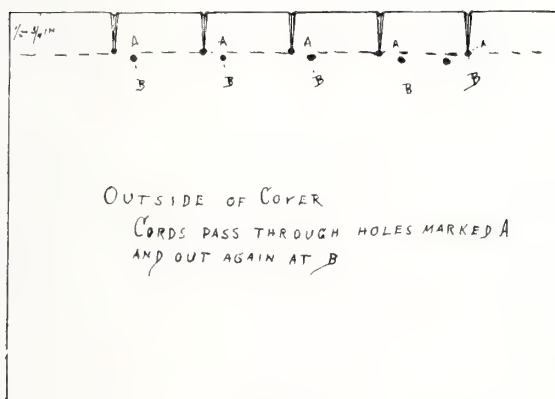 A A A A A
B B B B B
OUTSIDE OF COVER
CORDS PASS THROUGH HOLES MARKED A
AND OUT AGAIN AT B